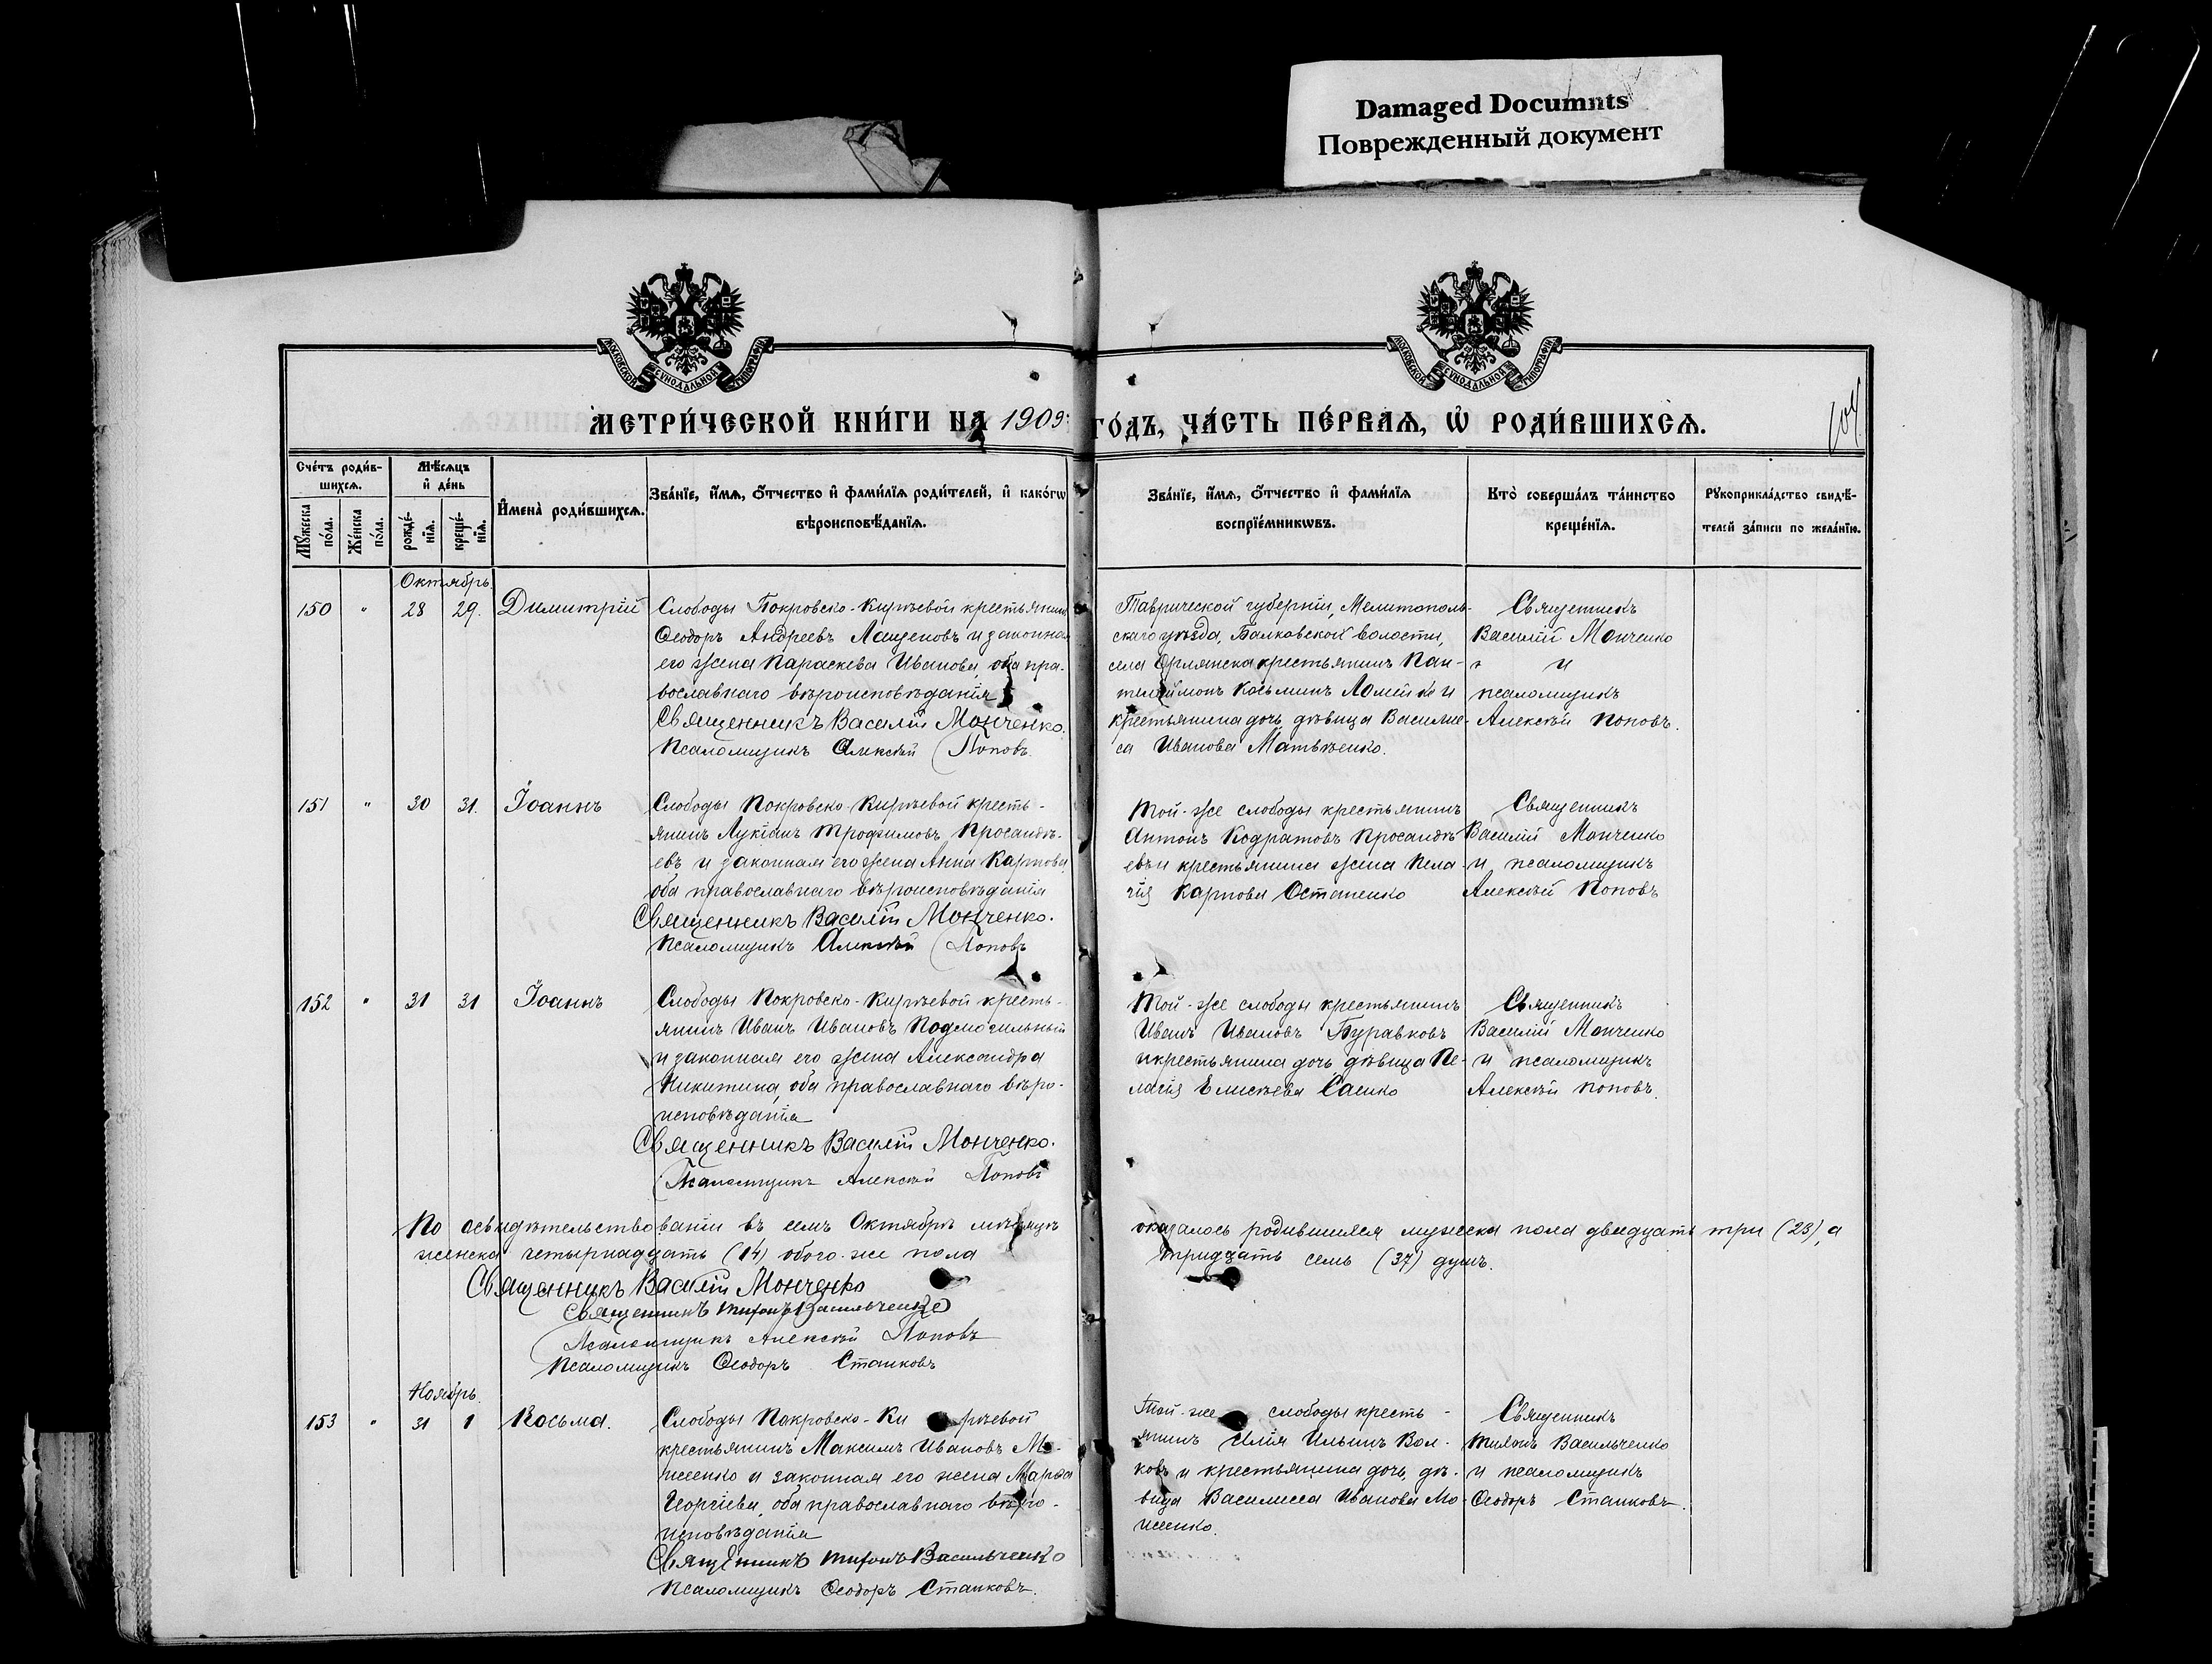 Damaged Documnts
Поврежденный документ
МОСКОВСКОЙ СѴНОДАЛЬНОЙ ТИПОГРАФІИ
МОСКОВСКОЙ СѴНОДАЛЬНОЙ ТИПОГРАФІИ
МЕТРИ́ЧЕСКОЙ КНИ́ГИ НА 1909 ГО́ДЪ, ЧА́СТЬ ПЕ́РВАѦ, Ѡ҆ РОДИ́ВШИХСѦ.
104
Сче́тъ роди́в-
шихсѧ.
Мꙋ́жеска по́ла.
Же́нска по́ла.
Мѣ́сѧцъ
и҆ де́нь
рожде́-
нїѧ.
креще́-
нїѧ.
И҆мена̀ роди́вшихсѧ.
Зва́нїе, и҆́мѧ, ѻ҆́тчество и҆ фами́лїѧ роди́телей, и҆ како́гѡ
вѣроисповѣ́данїѧ.
Зва́нїе, и҆́мѧ, ѻ҆́тчество и҆ фами́лїѧ
воспрїе́мникѡвъ.
Кто̀ соверша́лъ та́инство
креще́нїѧ.
Рꙋкоприкла́дство свидѣ́-
телей за́писи по жела́нїю.
Октябрь
150 " 28 29. Димитрій
Слободы Покровско-Киръевой крестьянинъ
Ѳеодоръ Андреевъ Лащеновъ и законная
его жена Параскева Иванова, оба пра-
вославнаго вѣроисповѣданія
Священникъ Василій Монченко.
Псаломщикъ Алексѣй Поповъ
Таврической губерніи, Мелитополь-
скаго уѣзда, Балковской волости,
села Орлянска крестьянинъ Пан-
телеймонъ Косьминъ Ломейко и
крестьянина дочь дѣвица Василис-
са Иванова Матвѣенко.
Священникъ
Василій Монченко
и
псаломщикъ
Алексѣй Поповъ.
151 " 30 31. Іоаннъ
Слободы Покровско-Киръевой кресть-
янинъ Лукіанъ Трофимовъ Просандѣ-
евъ и законная его жена Анна Карпова
оба православнаго вѣроисповѣданія
Священникъ Василій Монченко.
Псаломщикъ Алексѣй Поповъ
Той-же слободы крестьянинъ
Антонъ Кодратовъ Просандѣ
евъ и крестьянина жена Пела-
гія Карпова Остапенко
Священникъ
Василій Монченко
и псаломщикъ
Алексѣй Поповъ
152 " 31 31 Іоаннъ
Слободы Покровско-Киръевой кресть-
янинъ Иванъ Ивановъ Подмогильный
и законная его жена Александра
Никитина, оба православнаго вѣро-
исповѣданія
Священникъ Василій Монченко.
Псаломщикъ Алексѣй Поповъ
Той-же слободы крестьянинъ
Иванъ Ивановъ Буравковъ
и крестьянина дочь дѣвица Пе-
лагія Елисѣева Сашко
Священникъ
Василій Монченко
и псаломщикъ
Алексѣй Поповъ.
По освидѣтельствованіи въ семъ Октябрѣ мѣсяцѣ оказалось родившихся мужеска пола двадцать три (23), а
женска четырнадцать (14) обого-же пола тридцать семь (37) душъ.
Священникъ Василій Монченко
Священникъ Тихонъ Васильченко
Псаломщикъ Алексѣй Поповъ
Псаломщикъ Ѳеодоръ Станковъ
Ноябрь.
153 " 31 1 Косьма.
Слободы Пакровско-Ки ръевой
крестьянинъ Максимъ Ивановъ Мо-
исеенко и законная его жена Марѳа
Георгіева, оба православнаго вѣро-
исповѣданія
Священникъ Тихонъ Васильченко
Псаломщикъ Ѳеодоръ Станковъ.
Той-же слободы кресть-
янинъ Илія Ильинъ Вол-
ковъ и крестьянина дочь, дѣ-
вица Василисса Иванова Мо-
исеенко.
Священникъ
Тихонъ Васильченко
и псаломщикъ
Ѳеодоръ Станковъ.